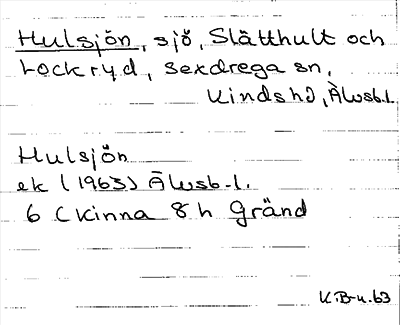 Hulsjön, sjö, Slätthult och
Lockryd, Sexdrega sn,
Kinds hd, Älvsb.l.
Hulsjön
ek (1963) Älvsb-l.
6 C Kinna 8 h Gränd
K.B-n. 63